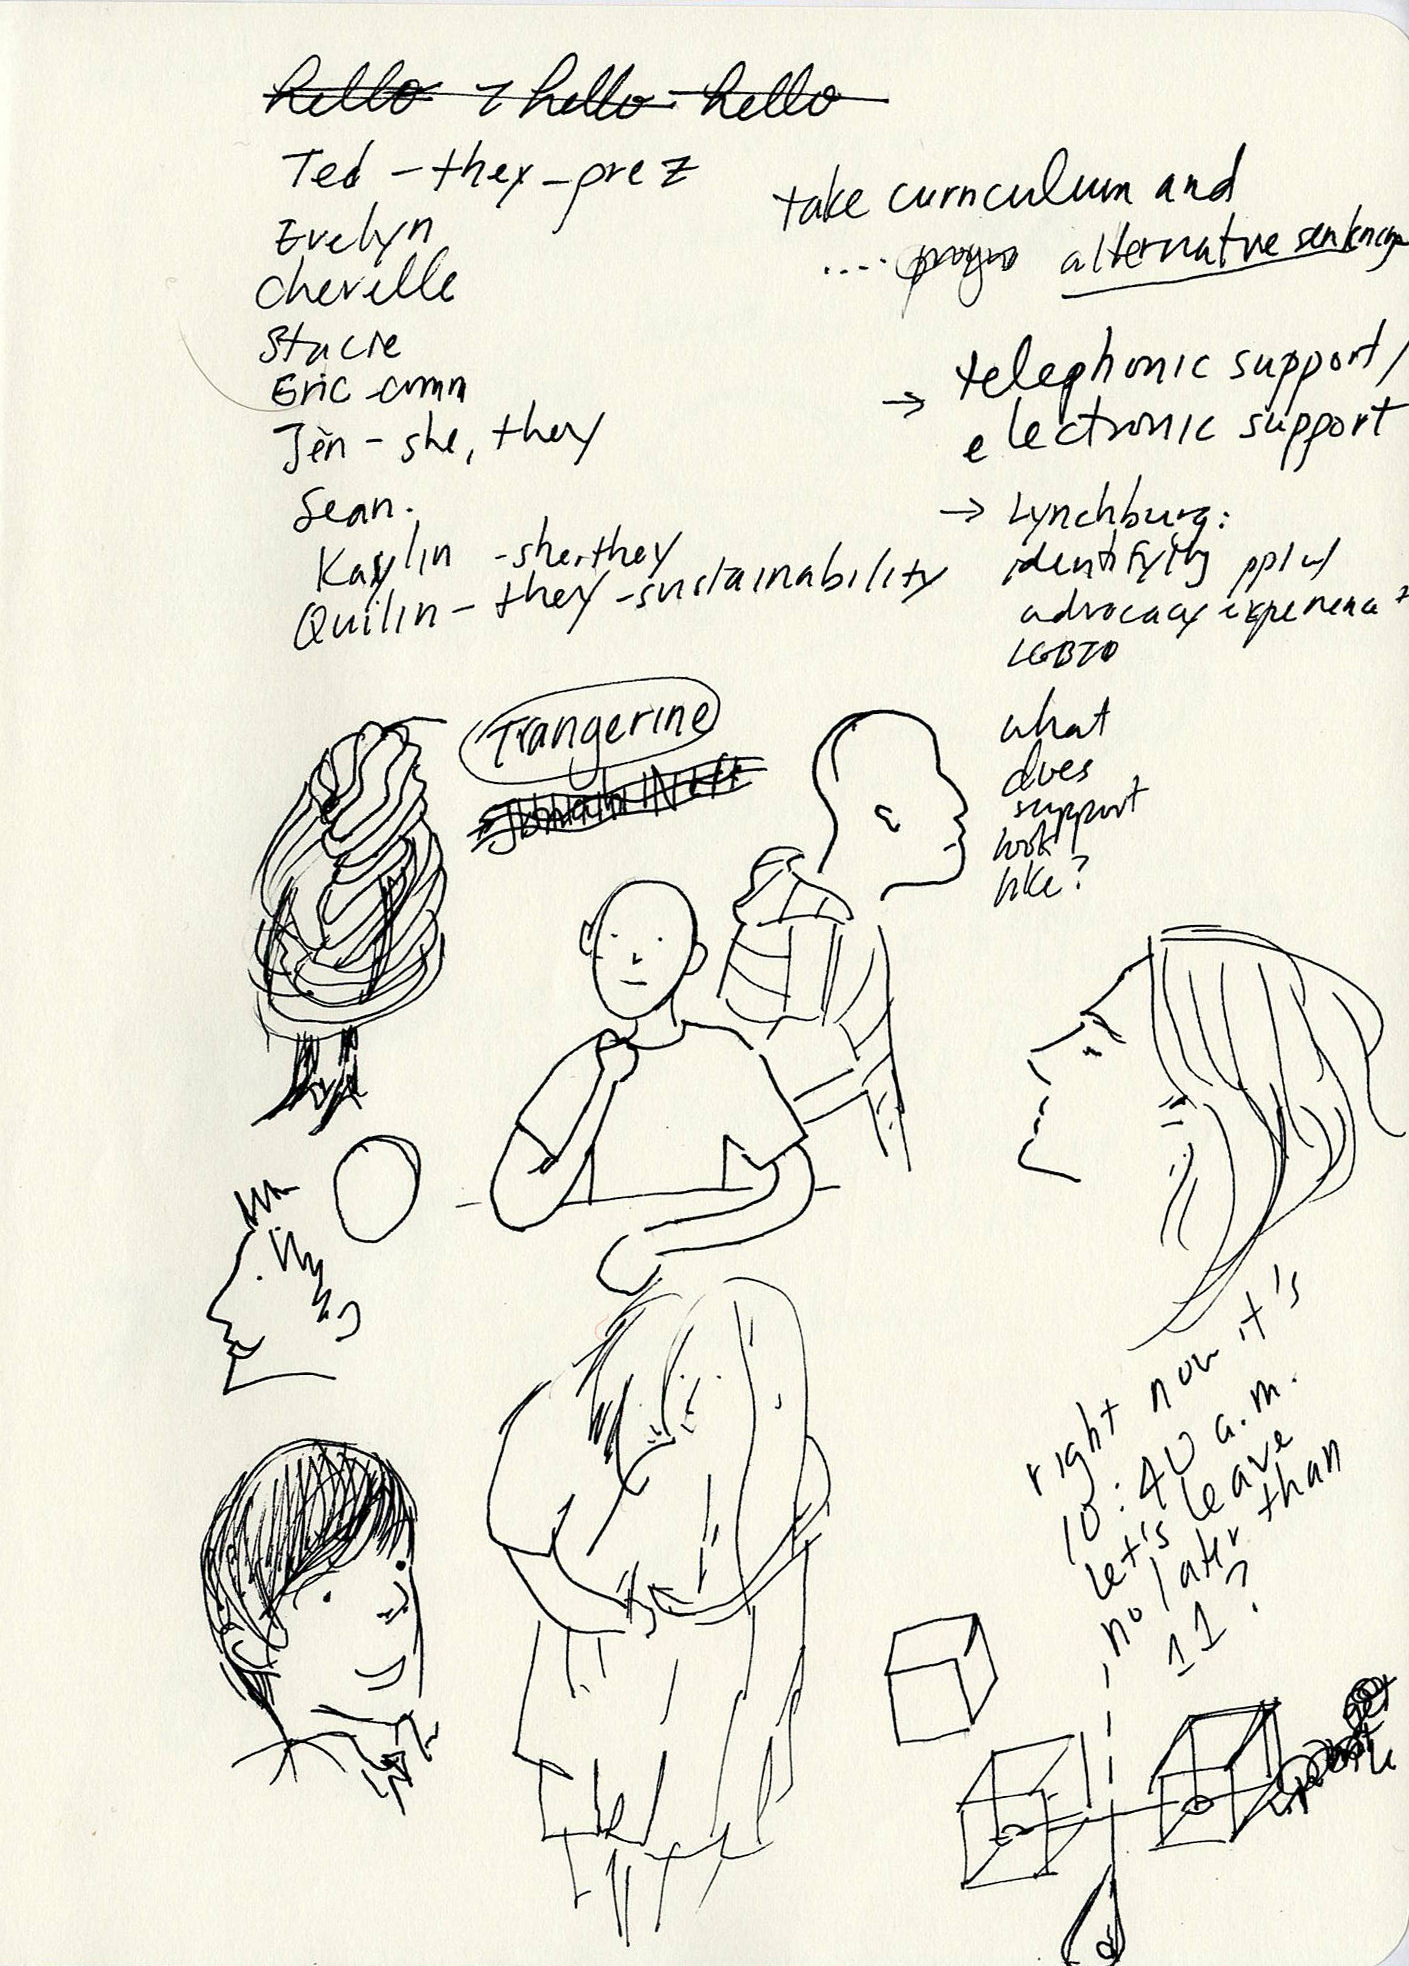 hello - hello - hello
Ted - they - prez
Evelyn
Cherelle
Stacie
Eric
Jen - she, they
Sean.
Kaylin - she. they
Quilin - they - sustainability
take curriculum and
.... alternative sentencing
→ telephonic support /
electronic support
→ Lynchburg:
identifying ppl w/
advocacy experience
LGBTQ
what
does
support
look
like?
Trangerine
right now it's
10:40 a.m.
let's leave
no later than
11?